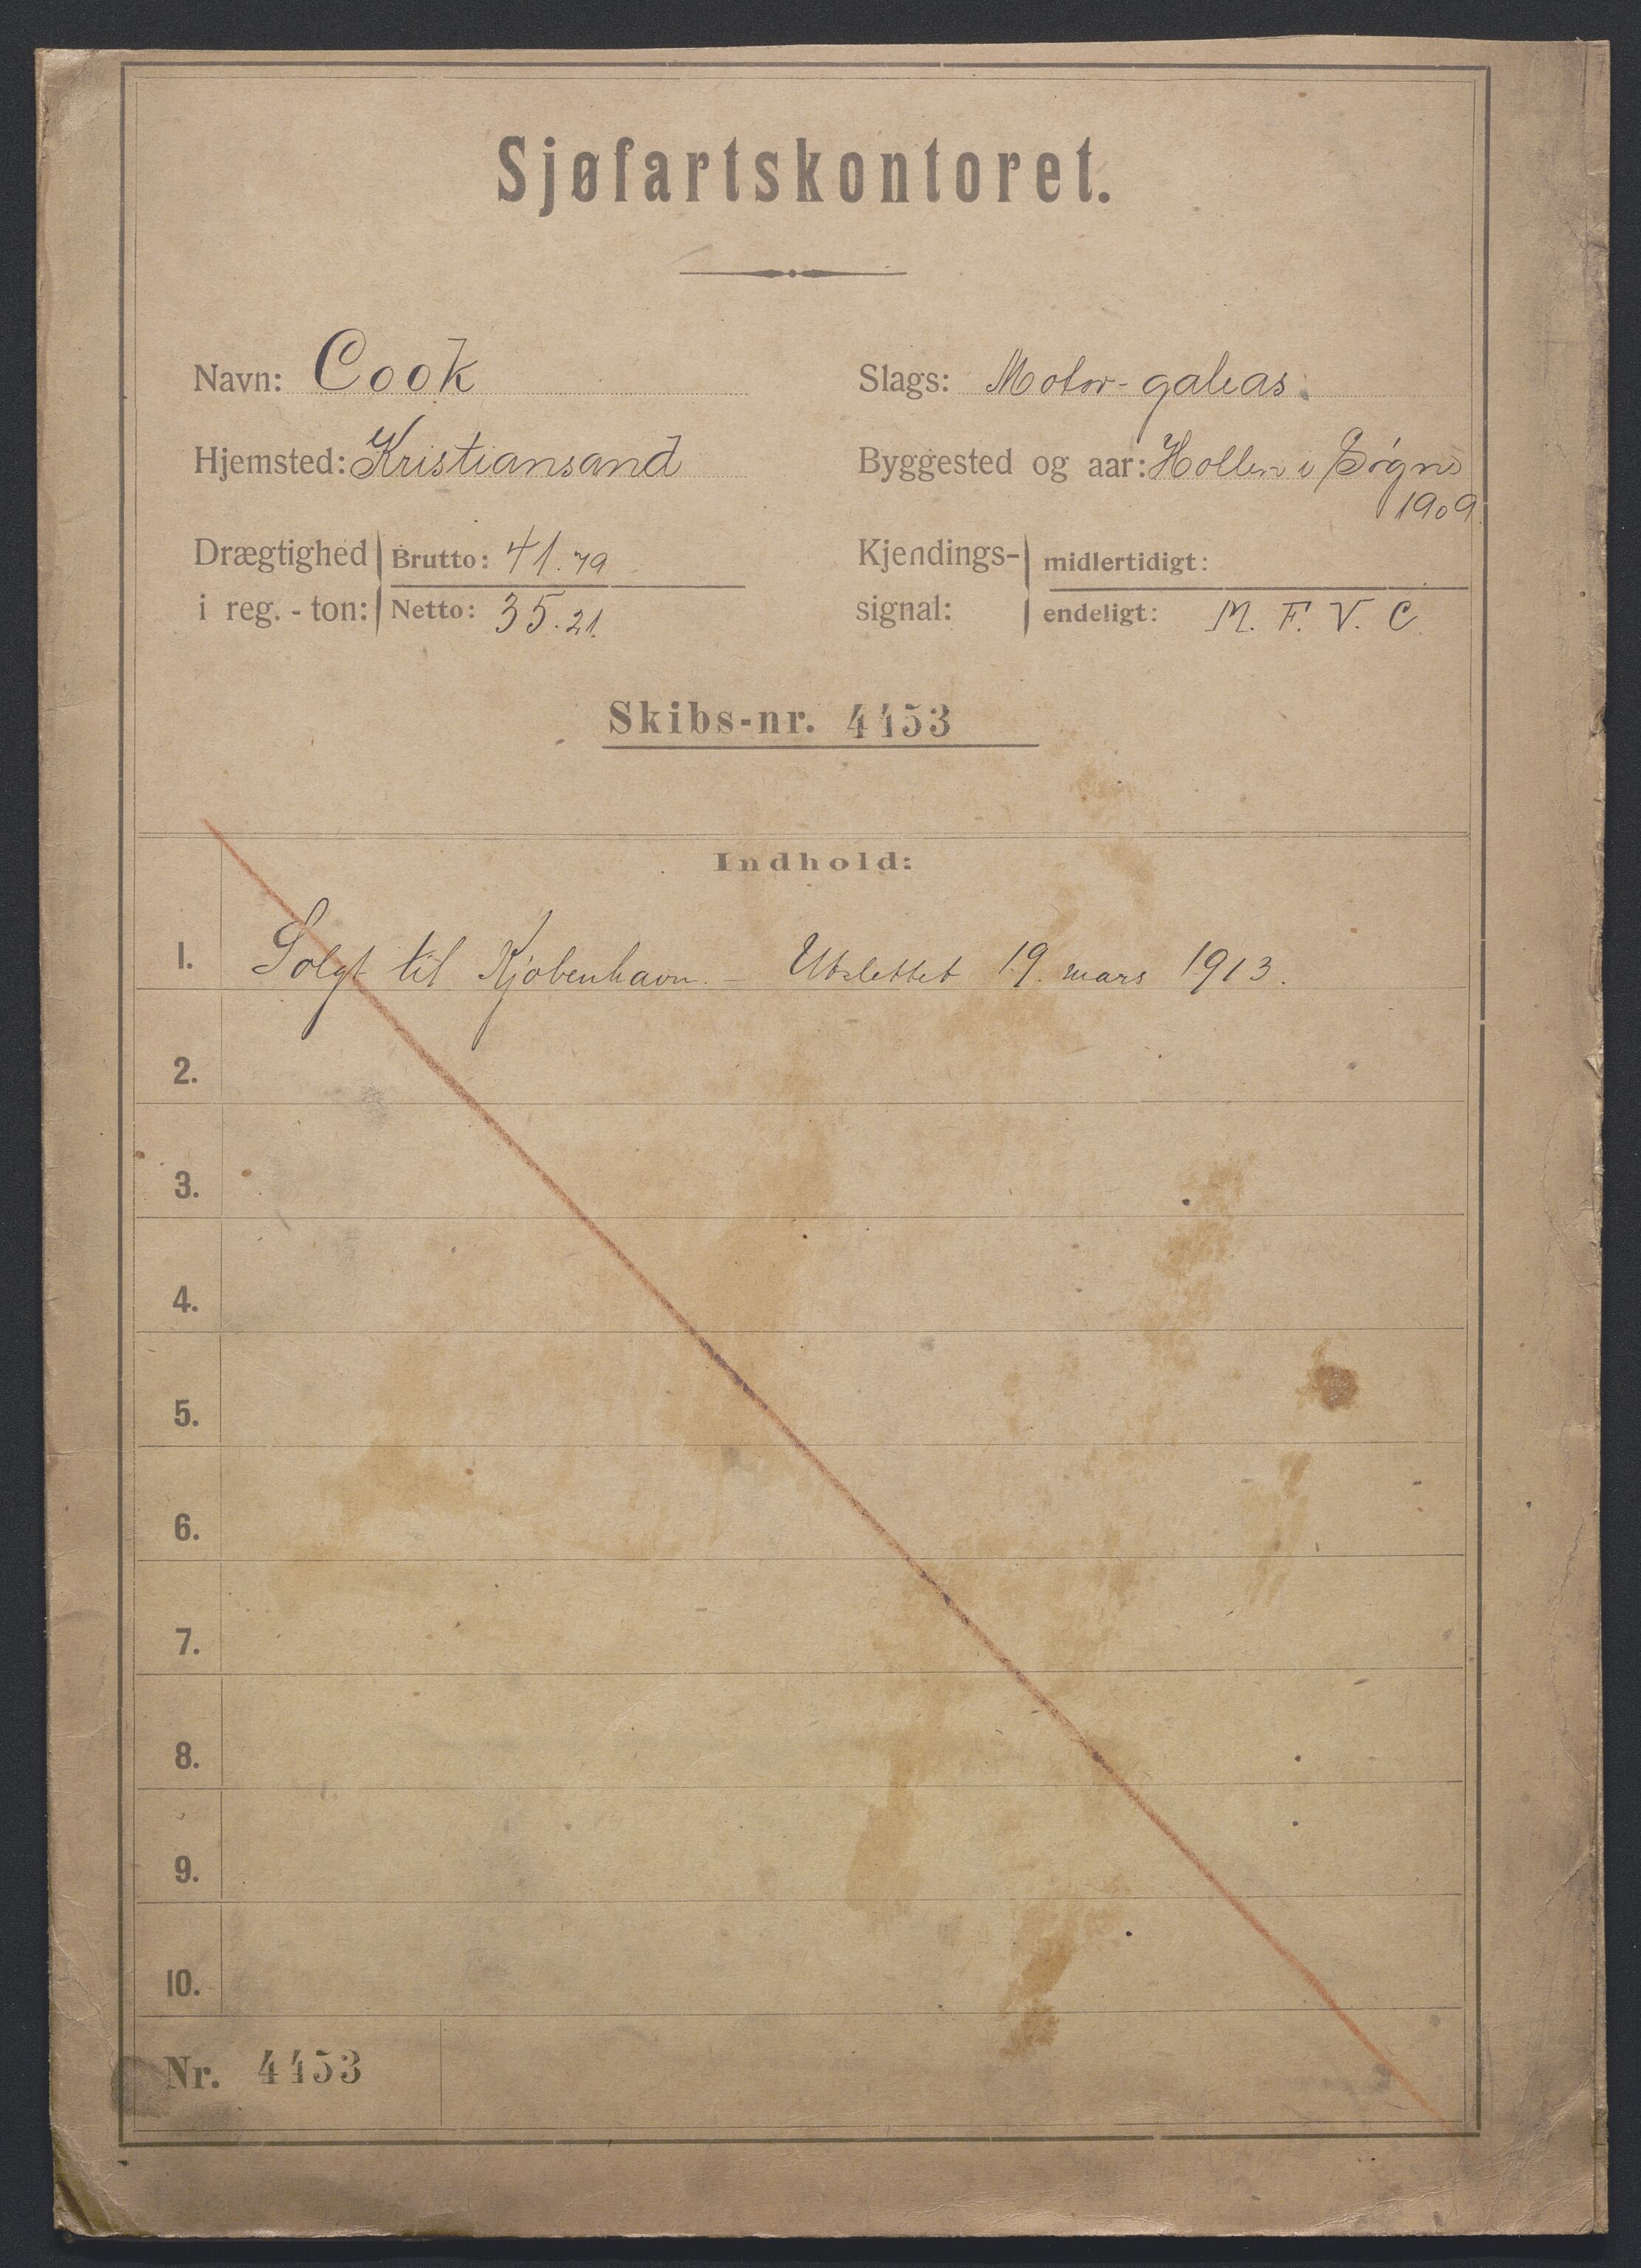 Sjøfartskontoret.
Navn: Cook
Slags: Motor-galeas.
Hjemsted: Kristiansand
Byggested og aar: Hollen i Søgne
1909.
Drægtighed i reg.-ton: Brutto: 41.79
Netto: 35.21.
Kjendings-signal: midlertidigt:
endeligt: M. F. V. C.
Skibs-nr. 4453
Indhold:
1. Solgt til Kjøbenhavn. – Utslettet 19. mars 1913.
2.
3.
4.
5.
6.
7.
8.
9.
10.
Nr. 4453